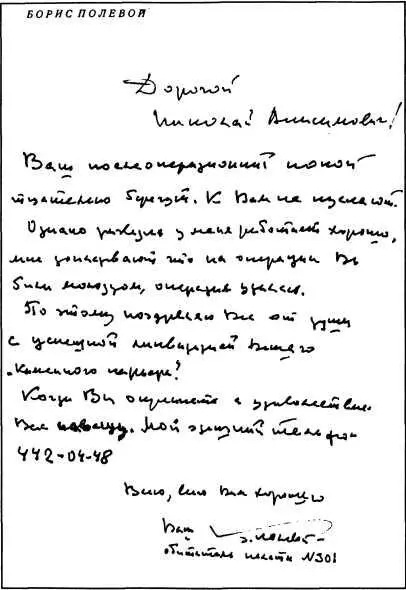 БОРИС ПОЛЕВОЙ
Дорогой
Николай Анисимович!
Ваш послеоперационный покой
тщательно берегут. К Вам не пускают.
Однако разведка у меня работает хорошо,
мне докладывают что на операции Вы
были молодцом, операция удалась.
По этому поздравляю Вас от души
с успешной ликвидацией Вашего
„Каменного карьера".
Когда Вы окрепнете с удовольствием
Вас навещу. Мой здешний телефон
442-04-48
Всего, всего Вам хорошего
Ваш Б. Полевой
обитатель палаты №301